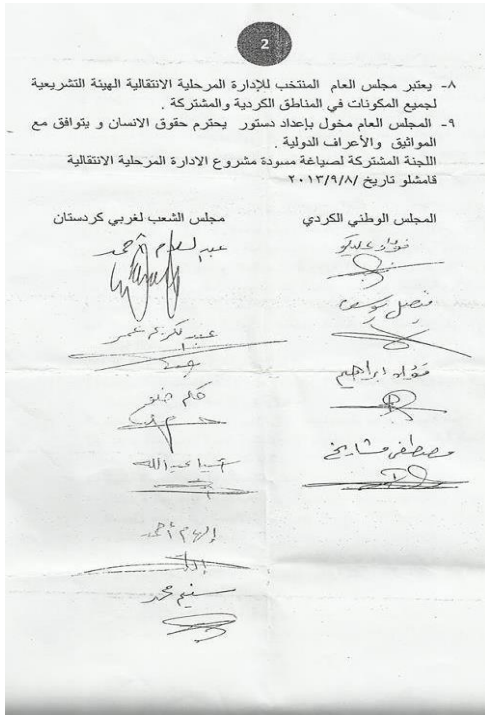 2
٨- يعتبر مجلس العام المنتخب للإدارة المرحلية الانتقالية الهيئة التشريعية
لجميع المكونات في المناطق الكردية والمشتركة .
٩- المجلس العام مخول بإعداد دستور يحترم حقوق الانسان و يتوافق مع
المواثيق والأعراف الدولية .
اللجنة المشتركة لصياغة مسودة مشروع الادارة المرحلية الانتقالية
قامشلو تاريخ /٢٠١٣/٩/٨
المجلس الوطني الكردي
فؤاد عليكو
فيصل يوسف
فؤاد ابراهيم
مصطفى مشايخ
مجلس الشعب لغربي كردستان
عبد السلام أحمد
عبد الكريم عمر
حكم خلو
آسيا عبدالله
إلهام أحمد
سنيم محمد